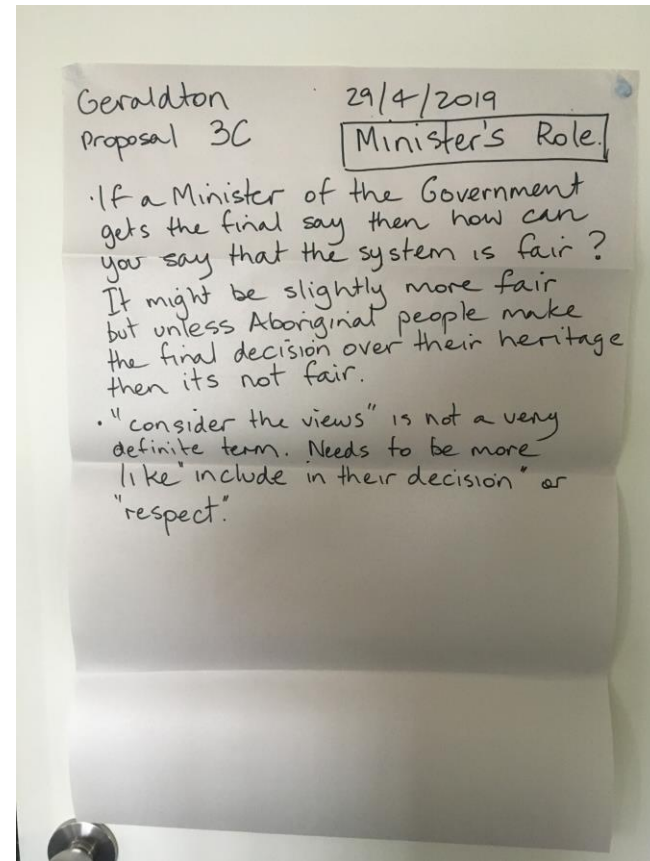 Geraldton 29/4/2019
Proposal 3C Minister's Role.
· If a Minister of the Government
gets the final say then how can
you say that the system is fair?
It might be slightly more fair
but unless Aboriginal people make
the final decision over their heritage
then its not fair.
· "consider the views" is not a very
definite term. Needs to be more
like "include in their decision" or
"respect."